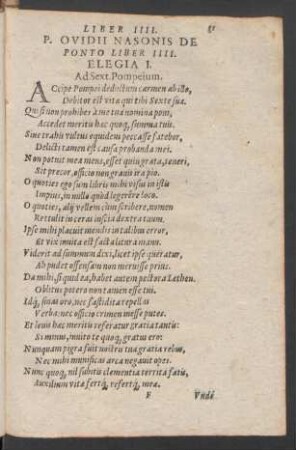 LIBER IIII.
P. OVIDII NASONIS DE
PONTO LIBER IIII.
ELEGIA I.
Ad Sext. Pompeium.
ACcipe Pompei deductum carmen ab illo,
Debitor est vitæ qui tibi Sexte suæ.
Qui si non prohibes à me tua nomina poni,
Accedet meritis hæc quoq; summa tuis.
Siue trahis vultus equidem peccasse fatebor,
Delicti tamen est causa probanda mei.
Non potuit mea mens, esset quin grata, teneri,
Sit precor, officio non grauis ira pio.
O quoties ego sum libris mihi visus in istis
Impius, in nullo quòd legerêre loco.
O quoties, alij vellem cùm scribere, nomen
Rettulit in ceras inscia dextra tuum.
Ipse mihi placuit mendis in talibus error,
Et vix inuita est facta litura manu.
Viderit ad summum dixi, licet ipse queratur,
Ah pudet offensam non meruisse prius.
Da mihi, si quid ea, habet autem pectora Lethen.
Oblitus potero non tamen esse tui.
Idq; sinas oro, nec fastidita repellas
Verba: nec officio crimen inesse putes.
Et leuis hæc meritis referatur gratia tantis:
Si minus, inuito te quoq; gratus ero:
Nunquam pigra fuit nostris tua gratia rebus,
Nec mihi munificas arca negauit opes.
Nunc quoq; nil subitis clementia territa fatis,
Auxilium vitæ fertq; refertq; meæ.
F Vndè